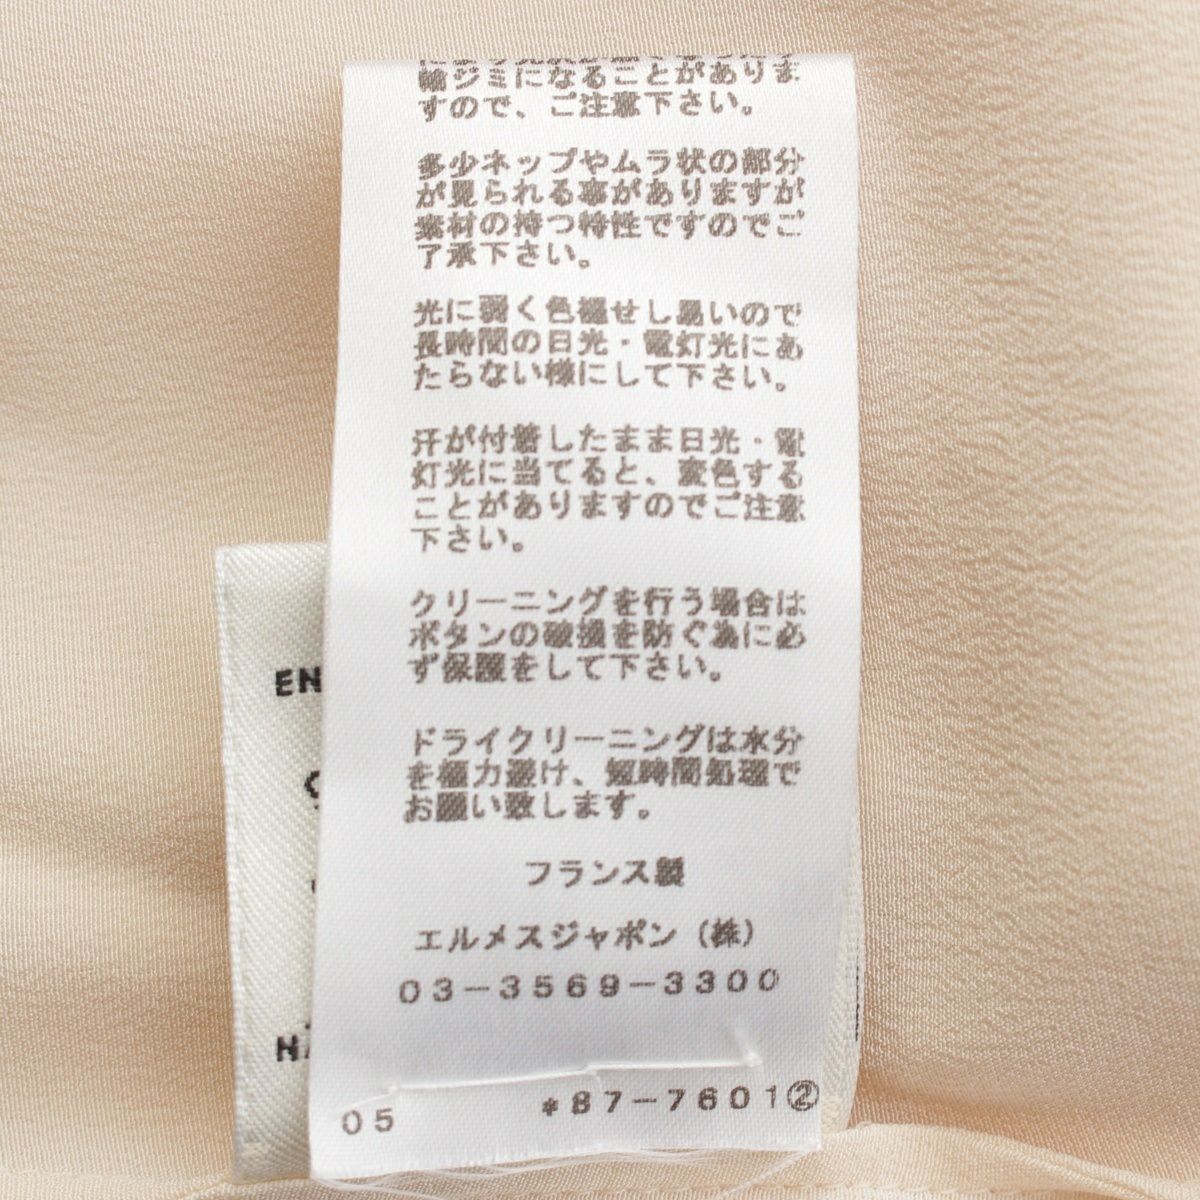 輪ジミになることがありま
すので、ご注意下さい。
多少ネップやムラ状の部分
が見られる事がありますが
素材の持つ特性ですのでご
了承下さい。
光に弱く色褪せし易いので
長時間の日光・電灯光にあ
たらない様にして下さい。
汗が付着したまま日光・電
灯光に当てると、変色する
ことがありますのでご注意
下さい。
クリーニングを行う場合は
ボタンの破損を防ぐ為に必
ず保護をして下さい。
ドライクリーニングは水分
を極力避け、短時間処理で
お願い致します。
フランス製
エルメスジャポン（株）
03-3569-3300
05 *87-7601②
EN